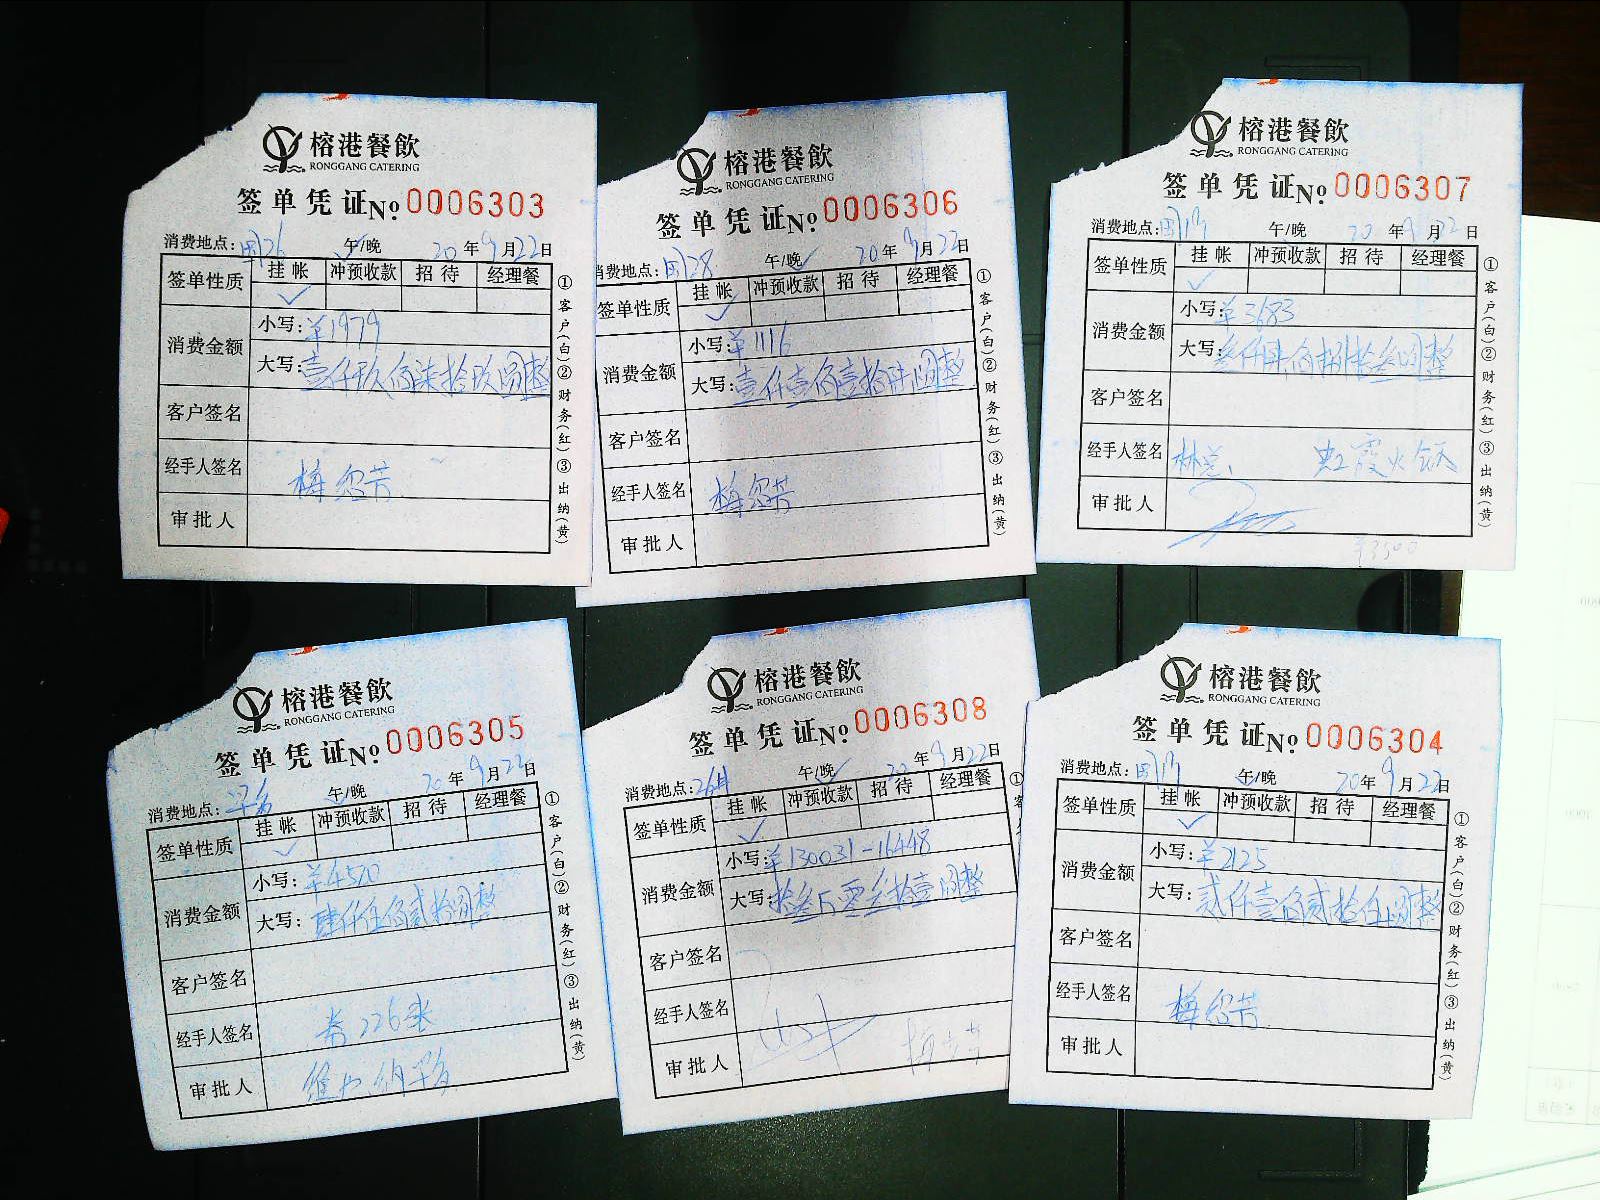 榕港餐飲
RONGGANG CATERING
签单凭证 No. 0006303
消费地点: 午/晚 20年9月22日
签单性质 挂帐 冲预收款 招待 经理餐
消费金额 小写: ¥1979
大写: 壹仟玖佰柒拾玖圆整
客户签名
经手人签名
审批人
①客户(白)②财务(红)③出纳(黄)
榕港餐飲
RONGGANG CATERING
签单凭证 No. 0006306
消费地点: 午/晚 20年9月22日
签单性质 挂帐 冲预收款 招待 经理餐
消费金额 小写: ¥1116
大写: 壹仟壹佰壹拾陆圆整
客户签名
经手人签名
审批人
①客户(白)②财务(红)③出纳(黄)
榕港餐飲
RONGGANG CATERING
签单凭证 No. 0006307
消费地点: 午/晚 20年9月22日
签单性质 挂帐 冲预收款 招待 经理餐
消费金额 小写: ¥3683
大写:
客户签名
经手人签名
审批人
¥3500
①客户(白)②财务(红)③出纳(黄)
榕港餐飲
RONGGANG CATERING
签单凭证 No. 0006305
消费地点: 午/晚 20年9月22日
签单性质 挂帐 冲预收款 招待 经理餐
消费金额 小写: ¥4520
大写: 肆仟伍佰贰拾圆整
客户签名
经手人签名
审批人
①客户(白)②财务(红)③出纳(黄)
榕港餐飲
RONGGANG CATERING
签单凭证 No. 0006308
消费地点: 午/晚 20年9月22日
签单性质 挂帐 冲预收款 招待 经理餐
消费金额 小写: ¥130031-16448
大写: 拾叁万零叁拾壹圆整
客户签名
经手人签名
审批人
榕港餐飲
RONGGANG CATERING
签单凭证 No. 0006304
消费地点: 午/晚 20年9月22日
签单性质 挂帐 冲预收款 招待 经理餐
消费金额 小写: ¥2125
大写: 贰仟壹佰贰拾伍圆整
客户签名
经手人签名
审批人
①客户(白)②财务(红)③出纳(黄)